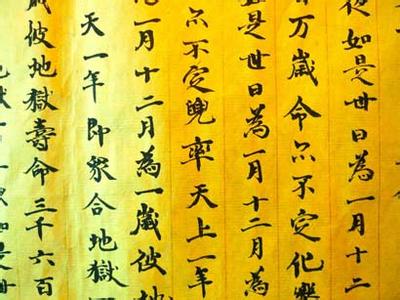 夜如是世日為一月十二
万歲命亦不定化樂
是世日為一月十二月為
亦不定兜率天上一年
一月十二月為一歲彼地
天一年即衆合地獄
歲彼地獄壽命三千六百
如是世